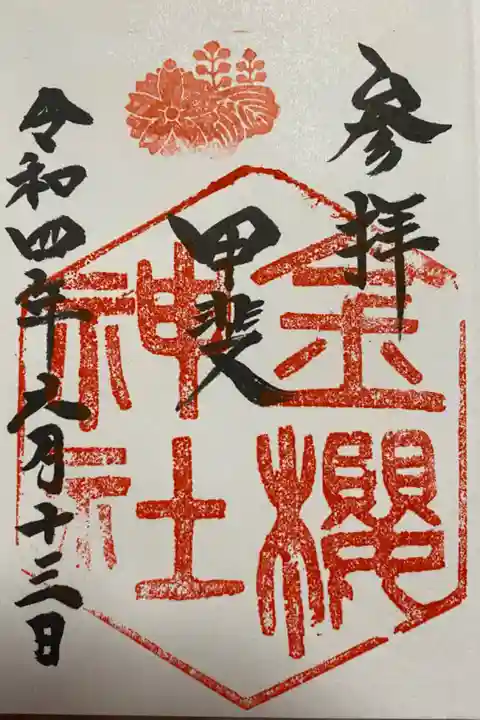 参拝
甲斐
金櫻
神社
令和四年六月十三日